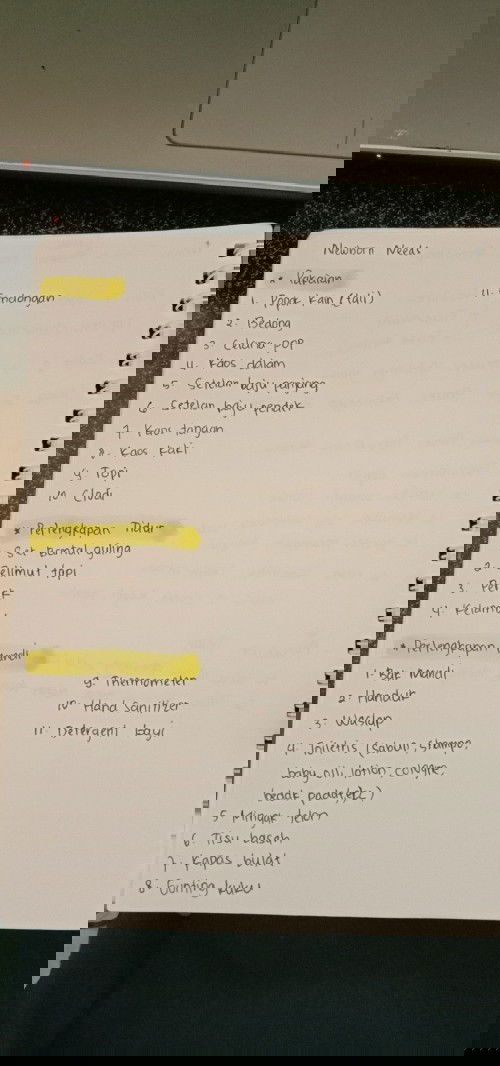 Newborn Needs
* Pakaian
1. Popok kain (tali)
2. Bedong
3. Celana pop
4. Kaos dalam
5. Setelan baju panjang
6. Setelan baju pendek
7. Kaos tangan
8. Kaos kaki
9. Topi
10. Gladi
* Perlengkapan Tidur
1. Set bantal guling
2. Selimut topi
3.
4.
* Perlengkapan
1. Bak Mandi
2. Handuk
3. Waslap
4. Toiletris (sabun, shampo,
baby oil, lotion, cologne,
bedak (padat))
5. Minyak telon
6. Tisu basah
7. Kapas bulat
8. Gunting kuku
9. Thermometer
10. Hand Sanitizer
11. Detergent Bayi